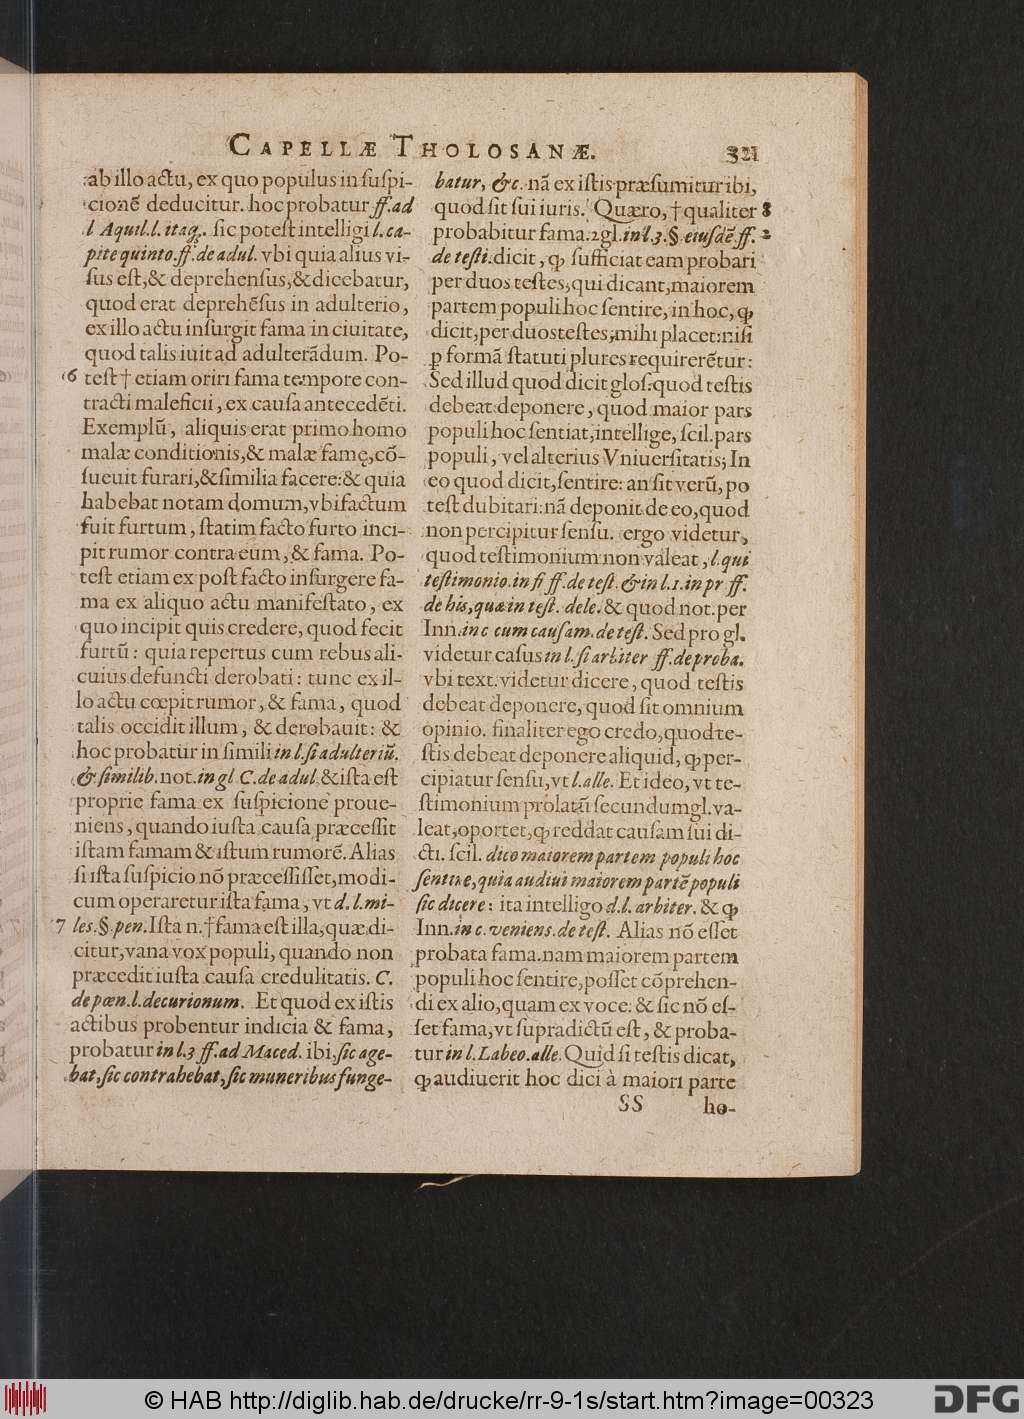 CAPELLÆ THOLOSANÆ. 321
ab illo actu, ex quo populus in ſuſpi-
cionē deducitur. hoc probatur ff. ad
l Aquil. l. itaq;. ſic poteſt intelligi l. ca-
pite quinto. ff. de adul. vbi quia alius vi-
ſus eſt, & deprehenſus, & dicebatur,
quod erat deprehēſus in adulterio,
ex illo actu inſurgit fama in ciuitate,
quod talis iuit ad adulterādum. Po-
6 teſt † etiam oriri fama tempore con-
tracti maleficii, ex cauſa antecedēti.
Exemplū, aliquis erat primo homo
malæ conditionis, & malæ famę, cō-
ſueuit furari, & ſimilia facere: & quia
habebat notam domum, vbi factum
fuit furtum, ſtatim facto furto inci-
pit rumor contra eum, & fama. Po-
teſt etiam ex poſt facto inſurgere fa-
ma ex aliquo actu manifeſtato, ex
quo incipit quis credere, quod fecit
furtū: quia repertus cum rebus ali-
cuius defuncti derobati: tunc ex il-
lo actu cœpit rumor, & fama, quod
talis occidit illum, & derobauit: &
hoc probatur in ſimili in l. ſi adulteriū.
& ſimilib. not. in gl C. de adul. & iſta eſt
proprie fama ex ſuſpicione proue-
niens, quando iuſta cauſa præceſſit
iſtam famam & iſtum rumorē. Alias
ſi iſta ſuſpicio nō præceſſiſſet, modi-
cum operaretur iſta fama, vt d. l. mi-
7 les. §. pen. Iſta n. † fama eſt illa, quæ di-
citur, vana vox populi, quando non
præcedit iuſta cauſa credulitatis. C.
de pœn. l. decurionum. Et quod ex iſtis
actibus probentur indicia & fama,
probatur in l. 3 ff. ad Maced. ibi, ſic age-
bat, ſic contrahebat, ſic muneribus funge-
batur, &c. nā ex iſtis præſumitur ibi,
quod ſit ſui iuris. Quæro, † qualiter 8
probabitur fama. 2 gl. in l. 3. § eiuſdē ff. 2
de teſti. dicit, ꝙ ſufficiat eam probari
per duos teſtes, qui dicant, maiorem
partem populi hoc ſentire, in hoc, ꝙ
dicit, per duos teſtes, mihi placet: niſi
ꝑ formā ſtatuti plures requirerētur:
Sed illud quod dicit gloſ. quod teſtis
debeat deponere, quod maior pars
populi hoc ſentiat, intellige, ſcil. pars
populi, vel alterius Vniuerſitatis; In
eo quod dicit, ſentire: an ſit verū, po
teſt dubitari: nā deponit de eo, quod
non percipitur ſenſu. ergo videtur,
quod teſtimonium non valeat, l. qui
teſtimonio. in fi ff. de teſt. & in l. 1. in pr ff.
de his, quæ in teſt. dele. & quod not. per
Inn. in c cum cauſam. de teſt. Sed pro gl.
videtur caſus in l. ſi arbiter ff. de proba.
vbi text. videtur dicere, quod teſtis
debeat deponere, quod ſit omnium
opinio. finaliter ego credo, quod te-
ſtis debeat deponere aliquid, ꝙ per-
cipiatur ſenſu, vt l. alle. Et ideo, vt te-
ſtimonium prolatū ſecundum gl. va-
leat, oportet, ꝙ reddat cauſam ſui di-
cti. ſcil. dico maiorem partem populi hoc
ſentire, quia audiui maiorem partē populi
ſic dicere: ita intelligo d. l. arbiter. & ꝙ
Inn. in c. veniens. de teſt. Alias nō eſſet
probata fama. nam maiorem partem
populi hoc ſentire, poſſet cōprehen-
di ex alio, quam ex voce: & ſic nō eſ-
ſet fama, vt ſupradictū eſt, & proba-
tur in l. Labeo. alle. Quid ſi teſtis dicat,
ꝙ audiuerit hoc dici à maiori parte
SS ho-
© HAB http://diglib.hab.de/drucke/rr-9-1s/start.htm?image=00323 DFG